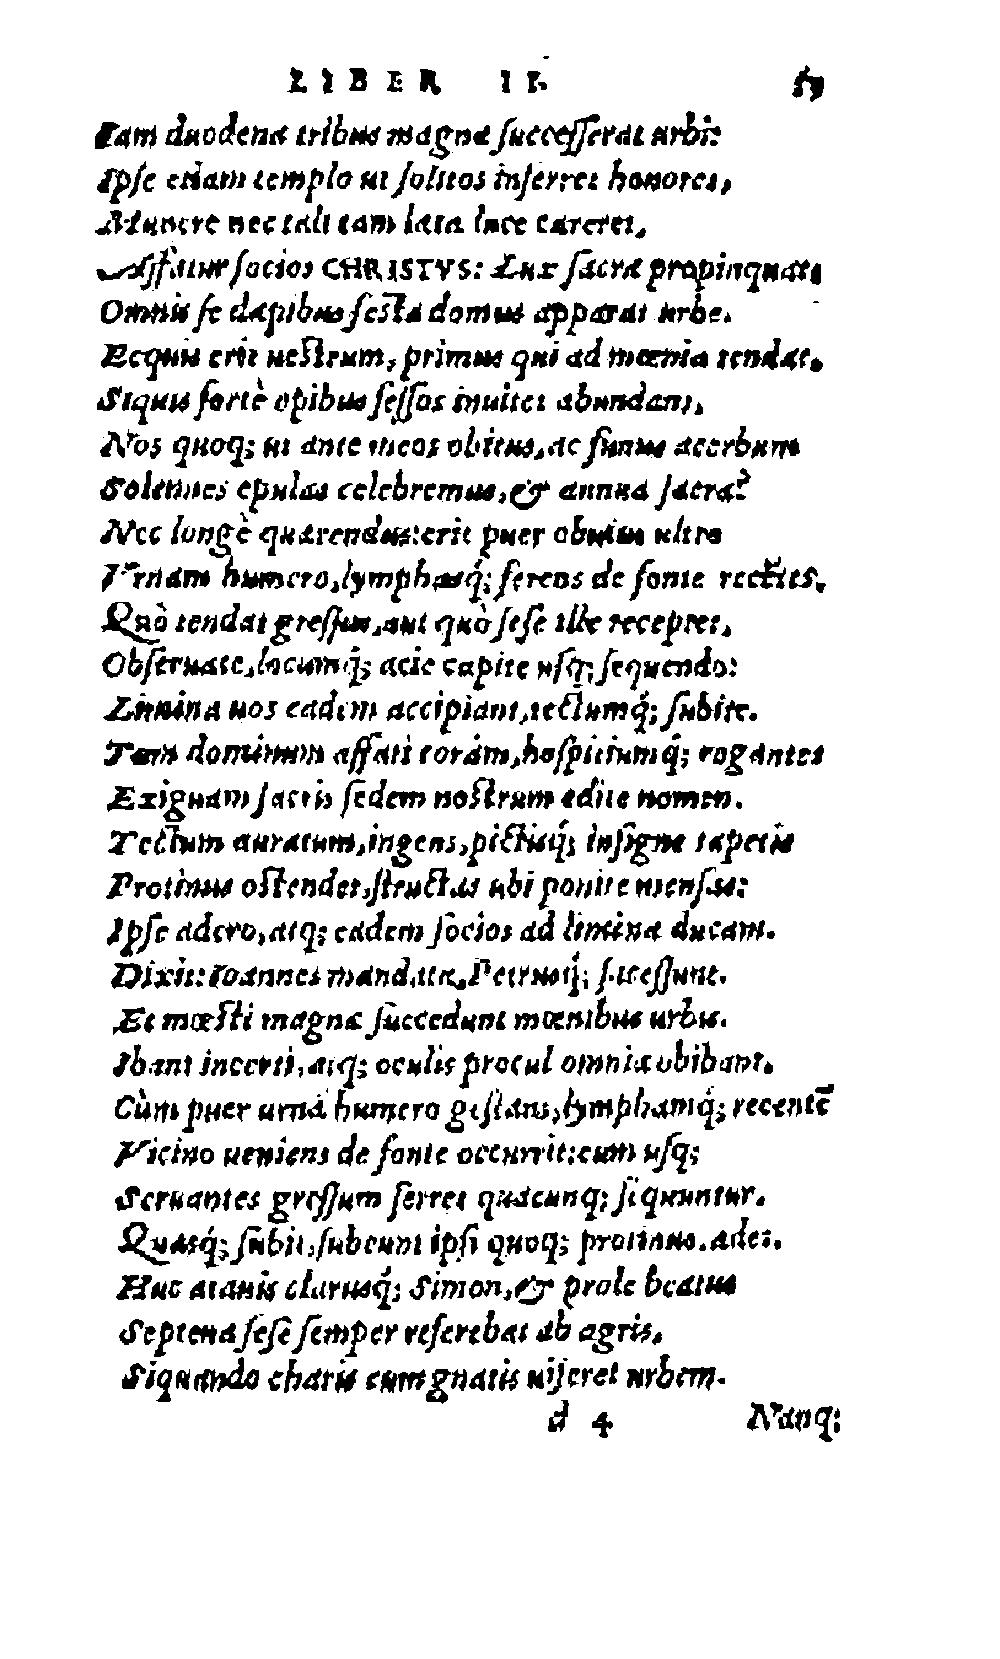 LIBER II.
Iam duodena tribus magnæ succesſerat urbi:
Ipſe etiam templo ut ſolitos inferret honores,
Munere nec tali tam læta luce careret,
Affatur ſocios CHRISTVS: Lux ſacra propinquat,
Omnis ſe dapibus feſta domus apparat urbe.
Ecquis erit ueſtrum, primus qui ad mœnia tendat,
Siquis fortè opibus feſſos inuitet abundans,
Nos quoq; ut ante meos obitus, ac funus acerbum
Solennes epulas celebremus, & annua ſacra?
Nec longè quærendus: erit puer obuius ultro
Vrnam humero, lymphasq́; ferens de fonte recẽtes.
Quò tendat greſſus, aut quò ſeſe ille receptet,
Obſeruate, locumq́; acie capite uſq; ſequendo:
Limina uos eadem accipiant, tectumq́; ſubite.
Tum dominum affati coràm, hoſpitiumq́; rogantes
Exiguam ſacris ſedem noſtrum edite nomen.
Tectum auratum, ingens, pictisq́; inſigne tapetis
Protinus oſtendet, ſtructas ubi ponite menſas:
Ipſe adero, atq; eadem ſocios ad limina ducam.
Dixit: Ioannes mandata, Petrusq́; faceſſunt.
Et mœſti magnæ ſuccedunt mœnibus urbis.
Ibant incerti, atq; oculis procul omnia obibant.
Cùm puer urnã humero geſtans, lymphamq́; recentẽ
Vicino ueniens de fonte occurrit: eum uſq;
Seruantes greſſum ferret quacunq; ſequuntur.
Quasq́; ſubit, ſubeunt ipſi quoq; protinus ædes.
Huc atauis clarusq́; Simon, & prole beatus
Septena ſeſe ſemper referebat ab agris,
Siquando charis cum gnatis uiſeret urbem.
d 4 Nanq;